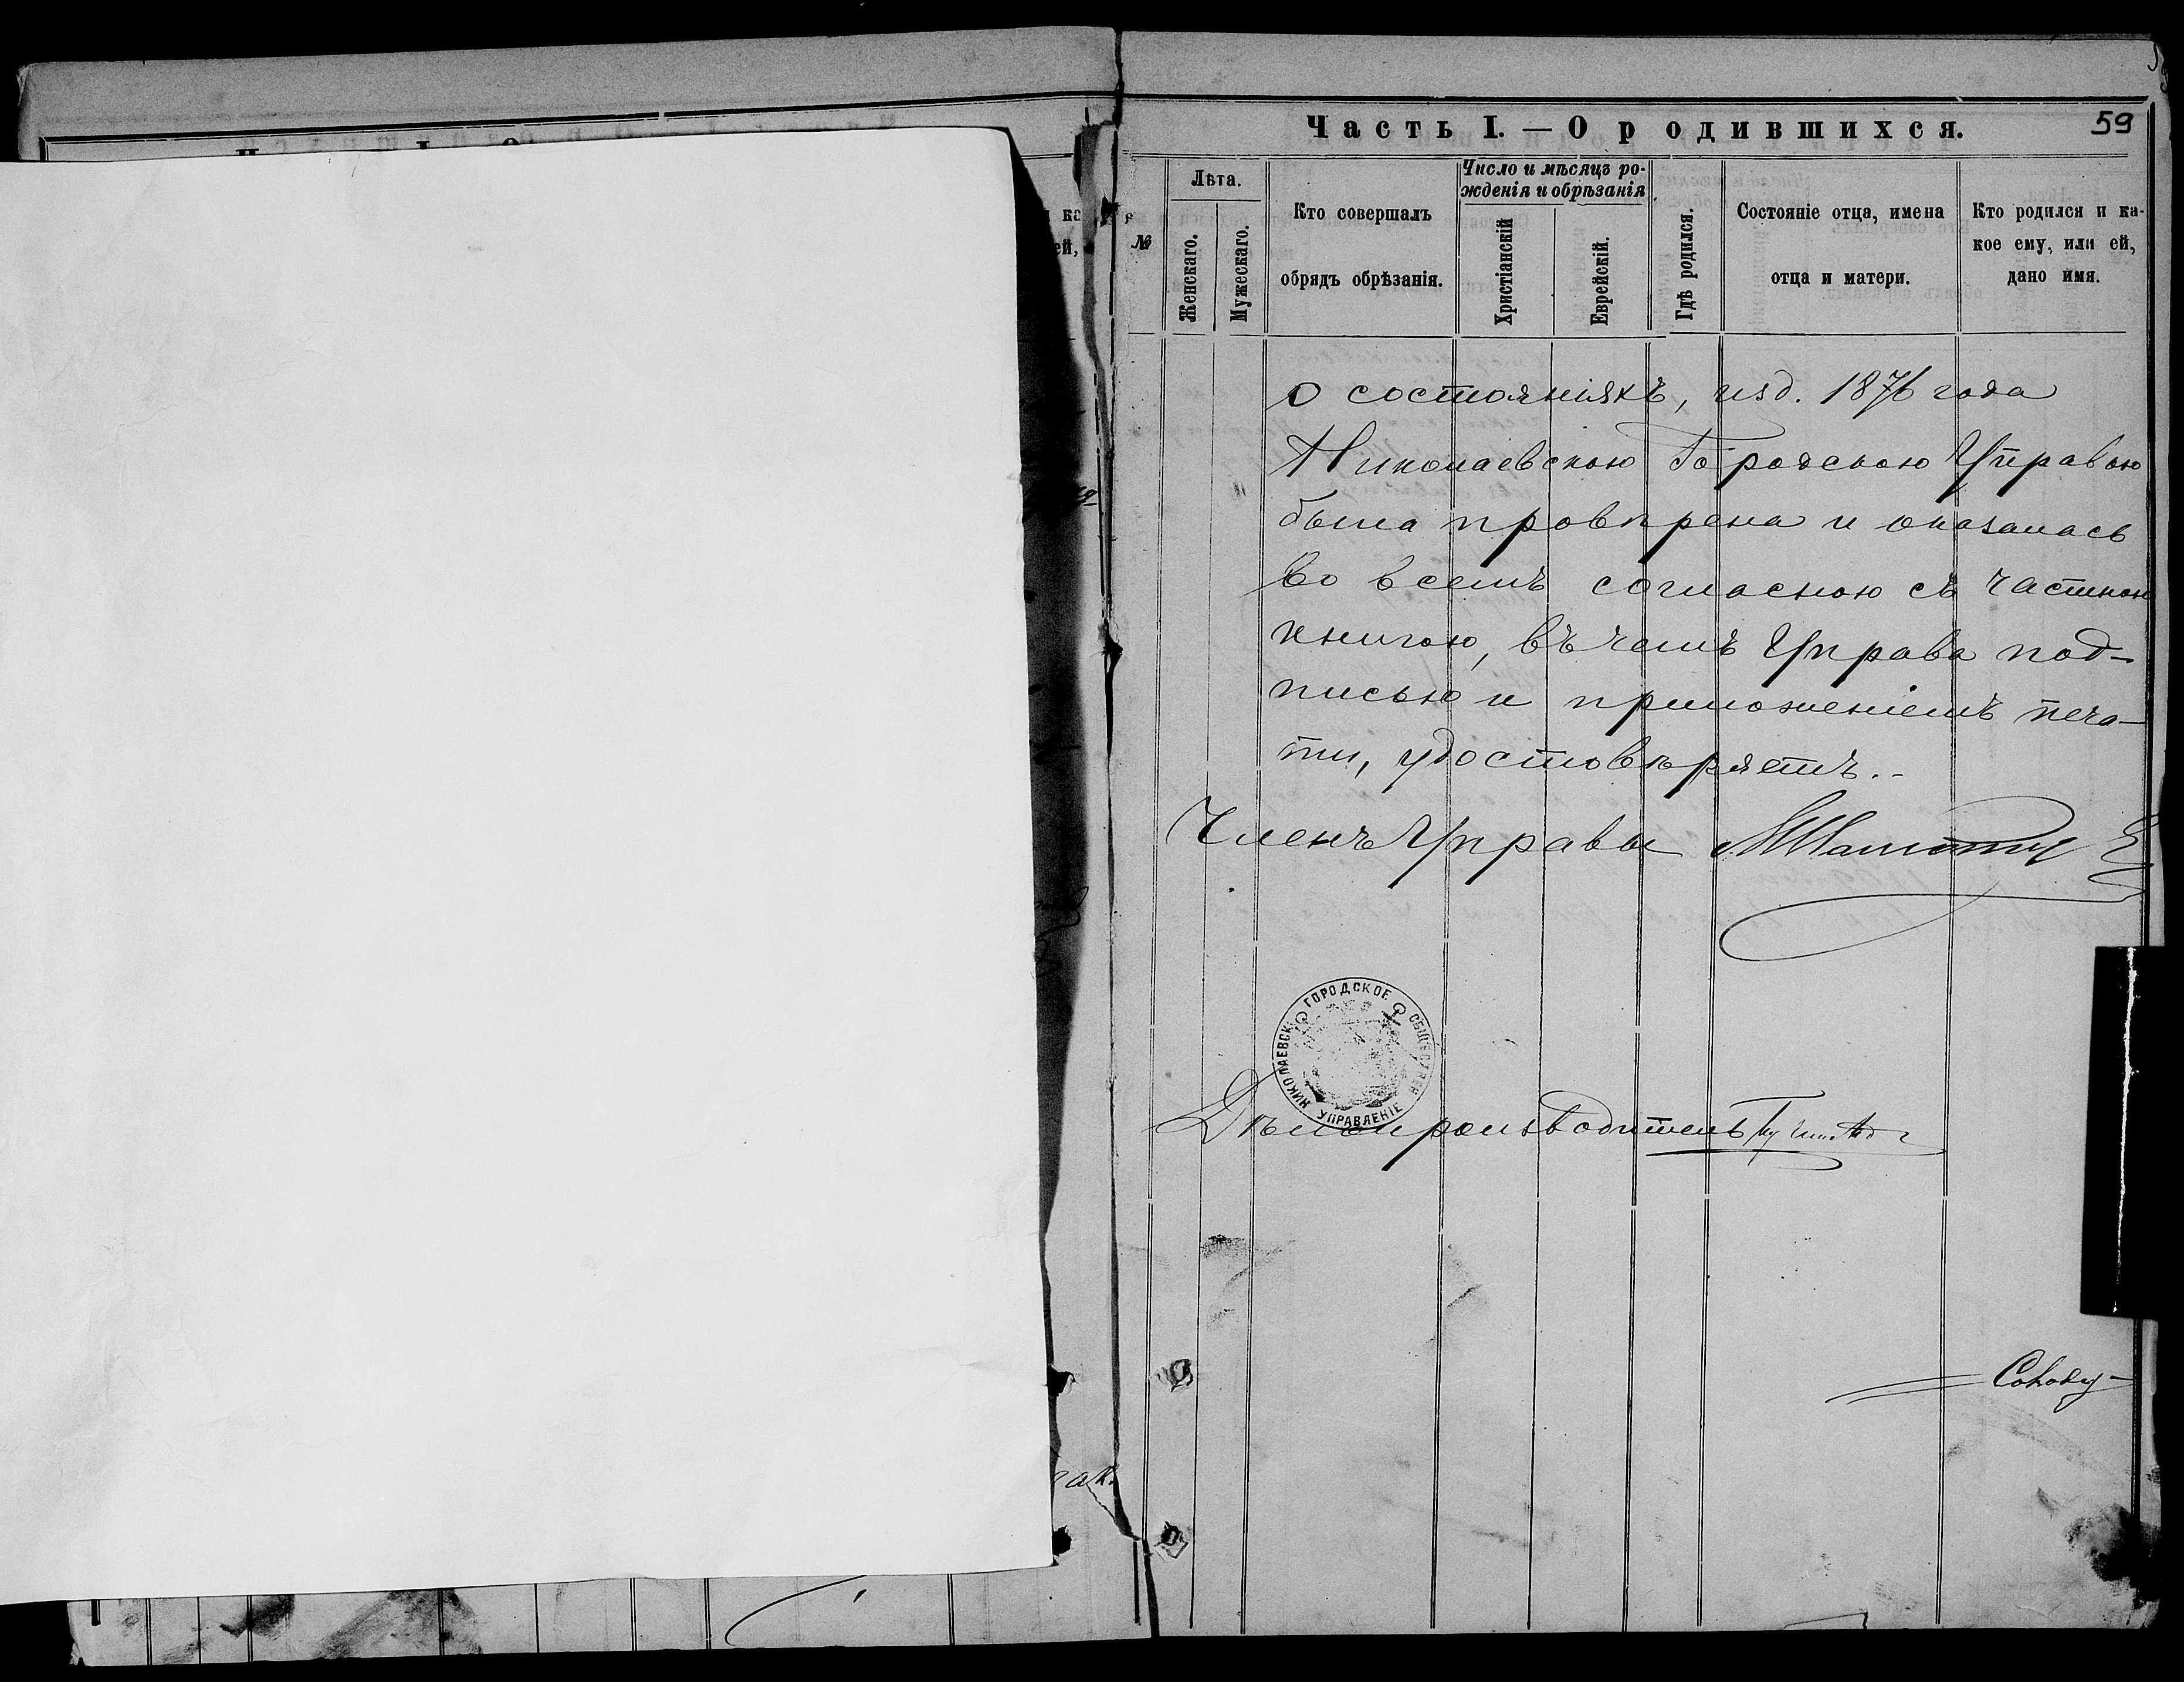 Часть I. — О родившихся.
59
№
Лѣта.
Женскаго.
Мужескаго.
Кто совершалъ
обрядъ обрѣзанія.
Число и мѣсяцъ ро-
жденія и обрѣзанія
Христіанскій
Еврейскій.
Гдѣ родился.
Состояніе отца, имена
отца и матери.
Кто родился и ка-
кое ему, или ей,
дано имя.
о состояніяхъ, изд. 1876 года
Николаевскою Городскою Управою
была провѣрена и оказалась
во всемъ согласною съ частною
книгою, въ чемъ Управа под-
писью и приложеніемъ печа-
ти, удостовѣряетъ.
Членъ Управы
НИКОЛАЕВСК. ГОРОДСКОЕ ОБЩЕСТВЕН. УПРАВЛЕНІЕ
Дѣлопроизводитель